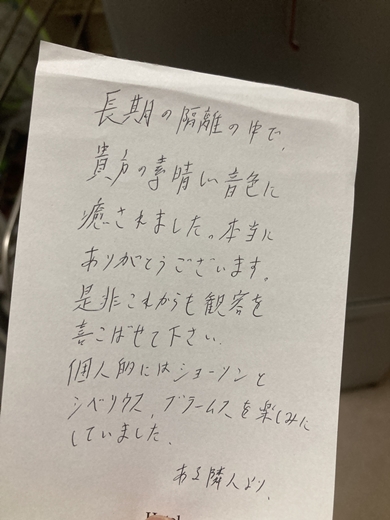 長期の隔離の中で、
貴方の素晴しい音色に
癒されました。本当に
ありがとうございます。
是非これからも観客を
喜こばせて下さい。
個人的にはショーソンと
シベリウス、ブラームスを楽しみに
していました。
ある隣人より。